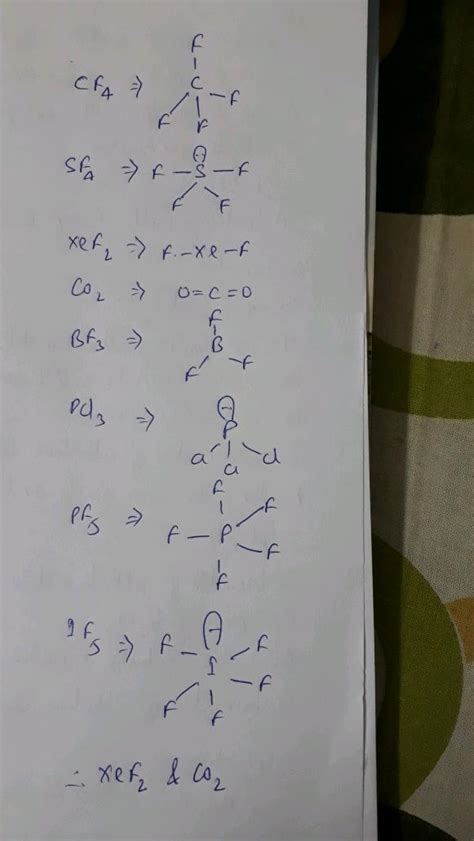 CF4 ⇒ F C F F F
SF4 ⇒ F - S - F F F
XeF2 ⇒ F - Xe - F
CO2 ⇒ O=C=O
BF3 ⇒ F B F F
PCl3 ⇒ P Cl Cl Cl
PF5 ⇒ F F - P F F F
IF5 ⇒ F I F F F F
∴ XeF2 & CO2